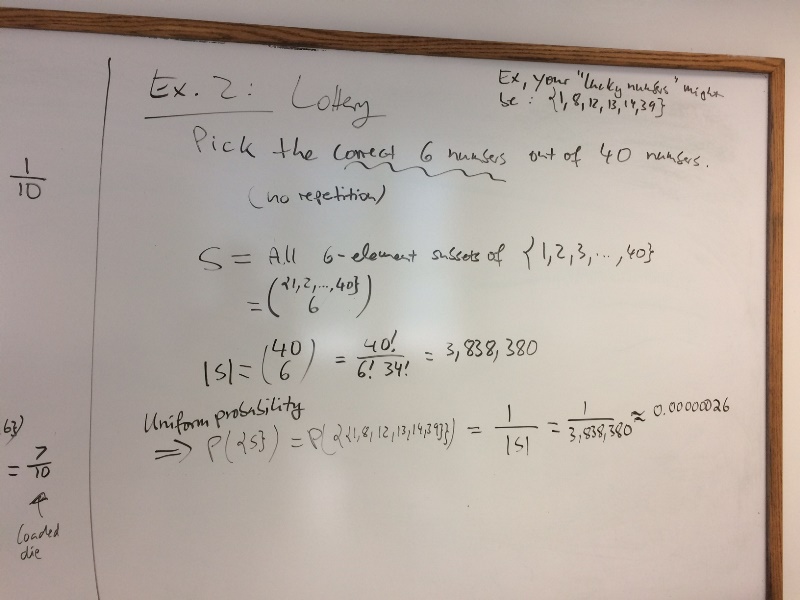 Ex. 2: Lottery
Ex, your "lucky numbers" might
be: {1,8,12,13,14,39}
Pick the correct 6 numbers out of 40 numbers.
(no repetition)
S = All 6-element subsets of {1,2,3,...,40}
= ({1,2,...,40} 6)
|S| = (40 6) = 40! / 6! 34! = 3,838,380
Uniform probability
⇒ P({s}) = P({{1,8,12,13,14,39}}) = 1/|S| = 1/3,838,380 ≈ 0.00000026
1/10
63)
= 7/10
↑
loaded
die